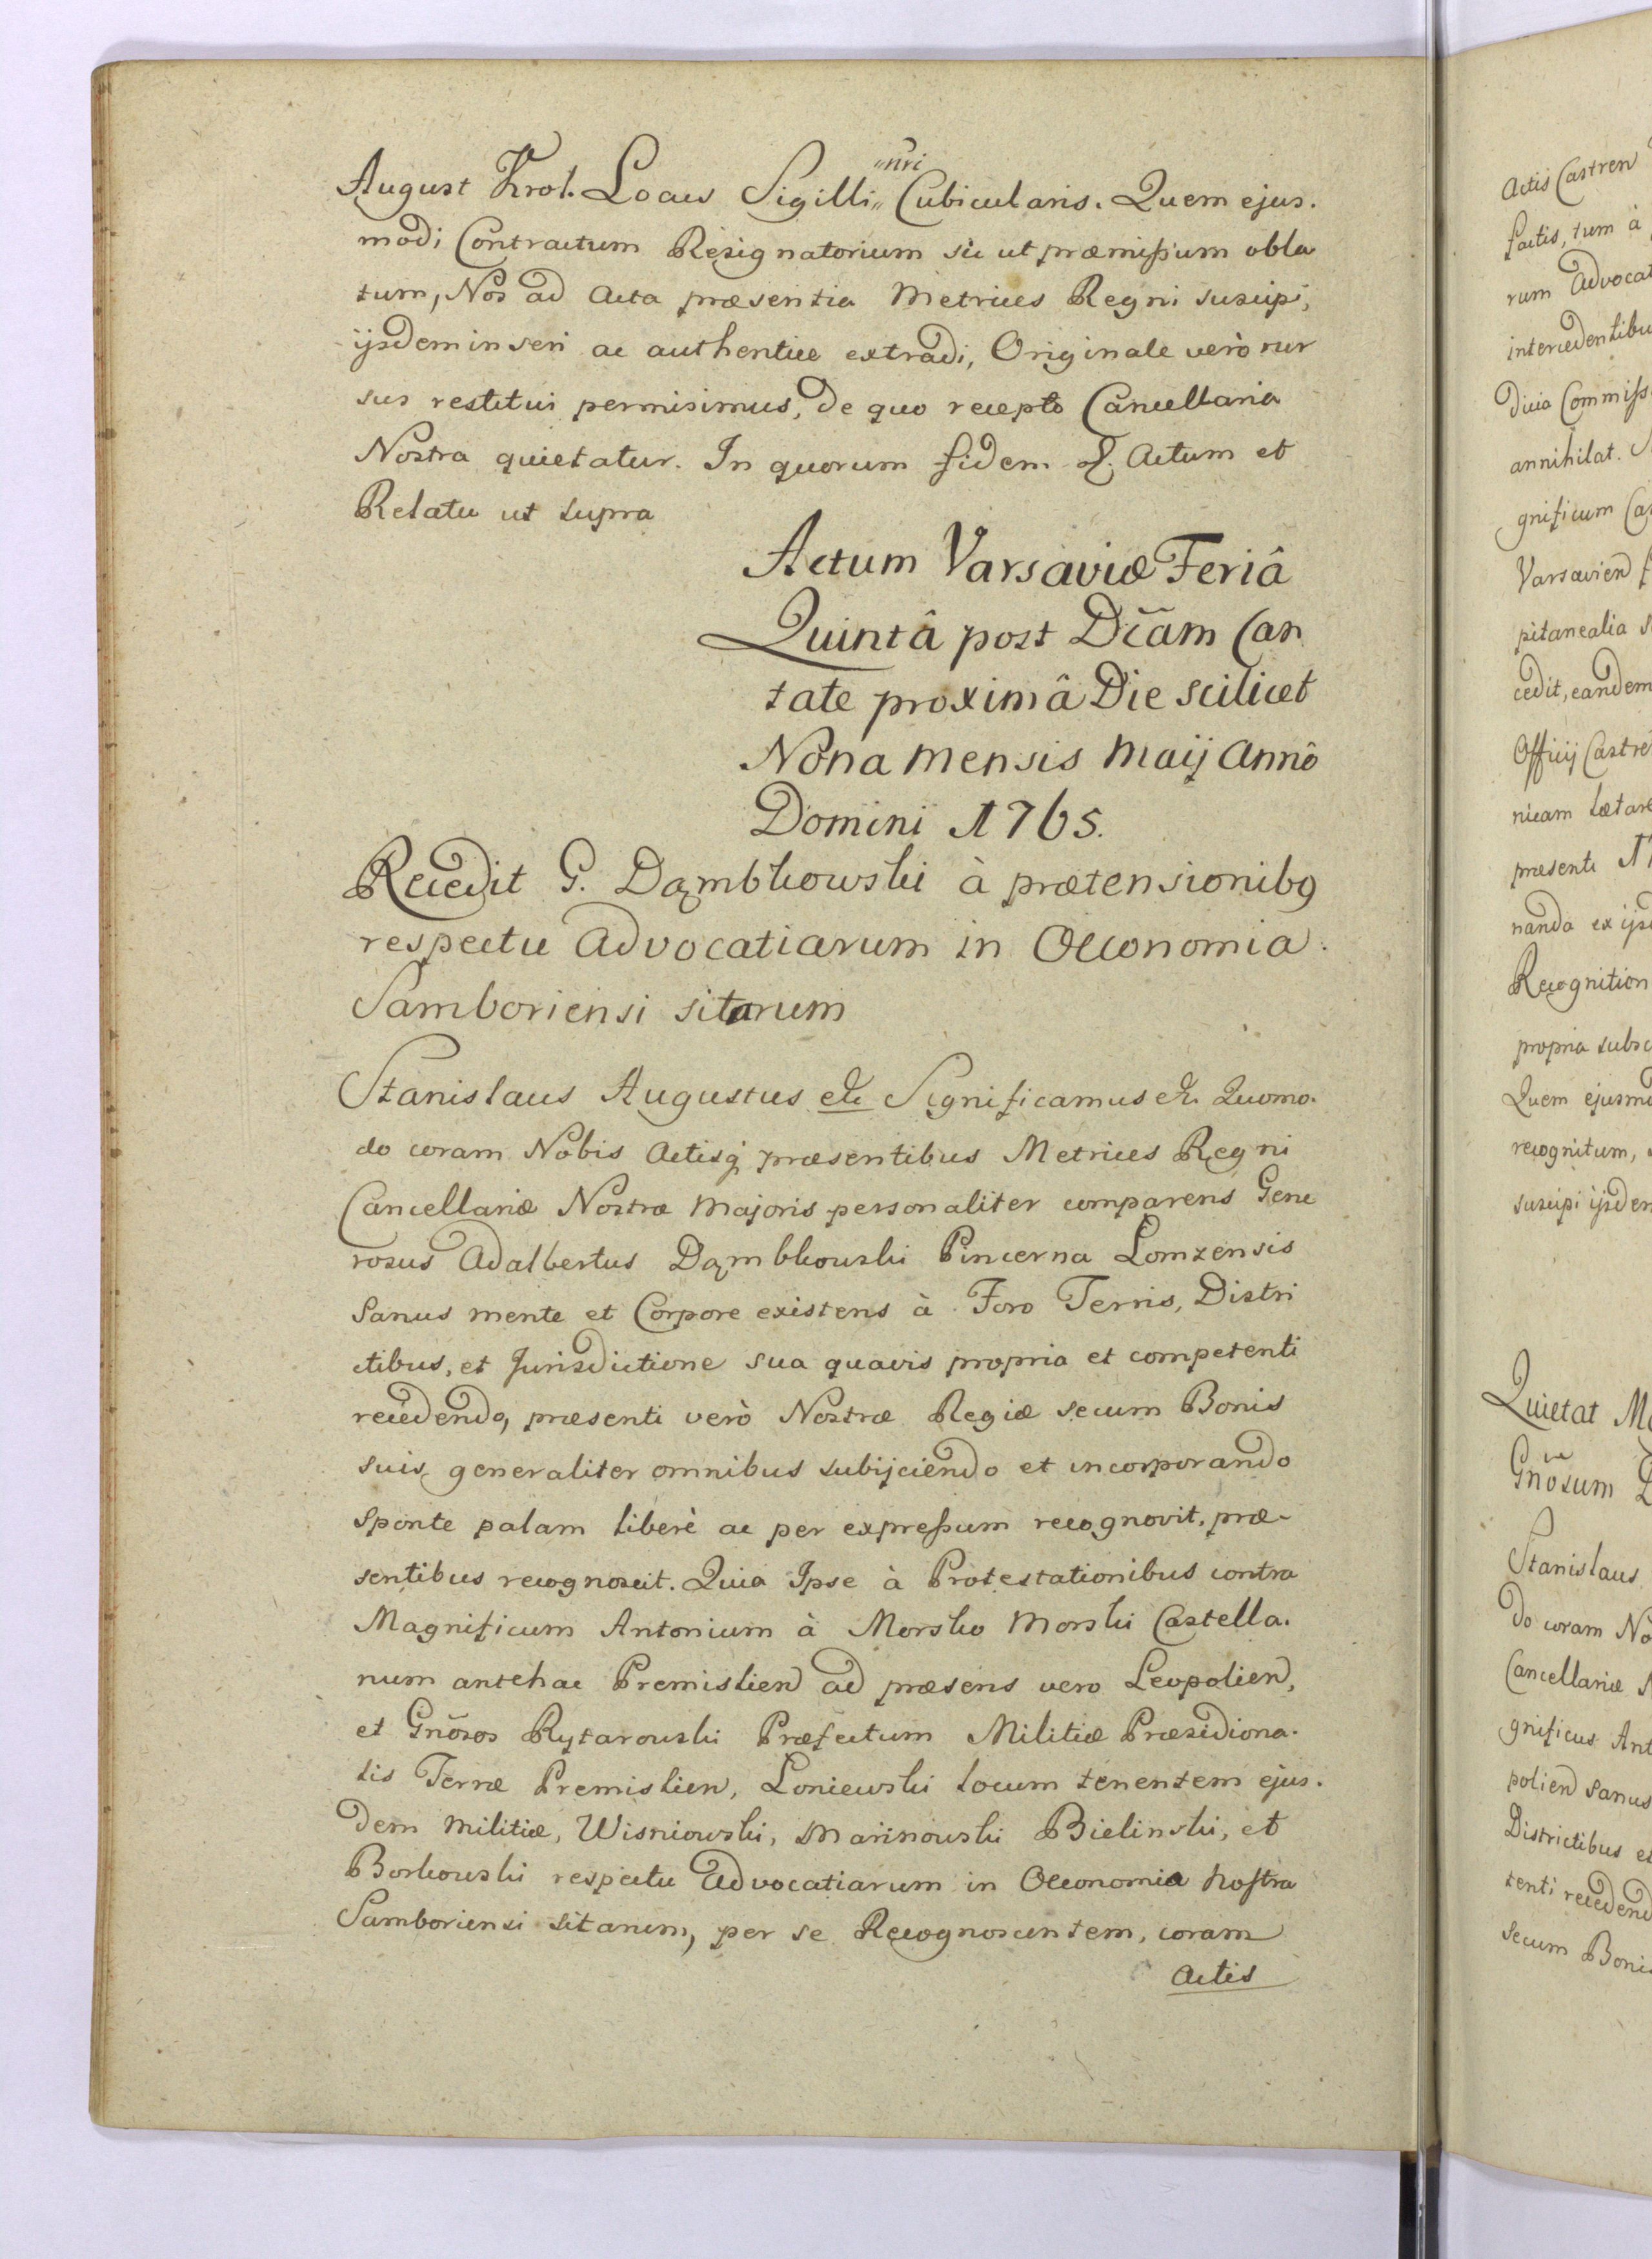 August Krol. Locus Sigilli „nri„ Cubicularis. Quem ejus.
modi Contractum Resignatorium sic ut præmissum obla
tum, Nos ad Acta præsentia Metrices Regni suscipi,
ijsdem inseri ac authentice extradi, Originale verò rur
sus restitui permisimus, de quo recepto Cancellaria
Nostra quietatur. In quorum fidem &. Actum et
Relatu ut supra
Actum Varsaviæ Feriâ
Quintâ post Dcãm Can
tate proximâ Die scilicet
Nona Mensis Maij Annô
Domini 1765.
Recedit G. Dąmbkowski à prætensionibq
respectu Advocatiarum in Oeconomia
Samboriensi sitarum
Stanislaus Augustus etc Significamus etc. Quomo.
do coram Nobis Actisq præsentibus Metrices Regni
Cancellariæ Nostræ Majoris personaliter comparens Gene
rosus Adalbertus Dąmbkowski Pincerna Lomzensis
Sanus mente et Corpore existens à Foro Terris, Distri
ctibus, et Jurisdictione sua quavis propria et competenti
recedendo, præsenti verò Nostræ Regiæ secum Bonis
suis generaliter omnibus subijciendo et incorporando
Sponte palam liberè ac per expressum recognovit, præ-
sentibus recognoscit. Quia Ipse à Protestationibus contra
Magnificum Antonium à Morsko Morski Castella.
num antehac Premislien ad præsens vero Leopolien,
et Gnõsos Rytarowski Præfectum Militiæ Præsidiona.
lis Terræ Premislien, Loniewski locum tenentem ejus.
dem Militiæ, Wisniowski, Marinowski Bielinski, et
Borkowski respectu Advocatiarum in Oeconomia Nostra
Samboriensi sitarum, per se Recognoscentem, coram
Actis
Actis Castren
factis, tum à
rum Advocat
intercedentibu
dicia Commiss
annihilat.
gnificum Cas
Varsavien
pitanealia
cedit, eandem
Officij Castre
nicam Lætare
præsenti
nanda ex ijsd
Recognition
propria subsc
Quem ejusmo
recognitum,
suscipi ijsdem
Quietat Ma
Gnõsum
Stanislaus
do coram No
Cancellariæ
gnificus Ant
polien Sanus
Districtibus et
tenti recedend
secum Bonis